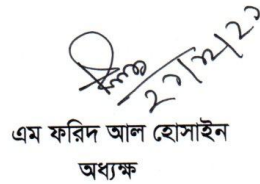 এম ফরিদ আল হোসাইন
অধ্যক্ষ